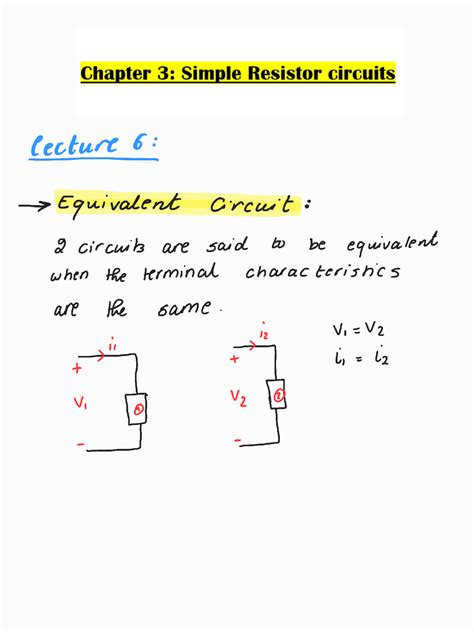 Chapter 3: Simple Resistor circuits
Lecture 6:
→ Equivalent Circuit:
2 circuits are said to be equivalent
when the terminal characteristics
are the same.
V₁ = V₂
i₁ = i₂
i₁
+
V₁
①
-
i₂
+
V₂
②
-